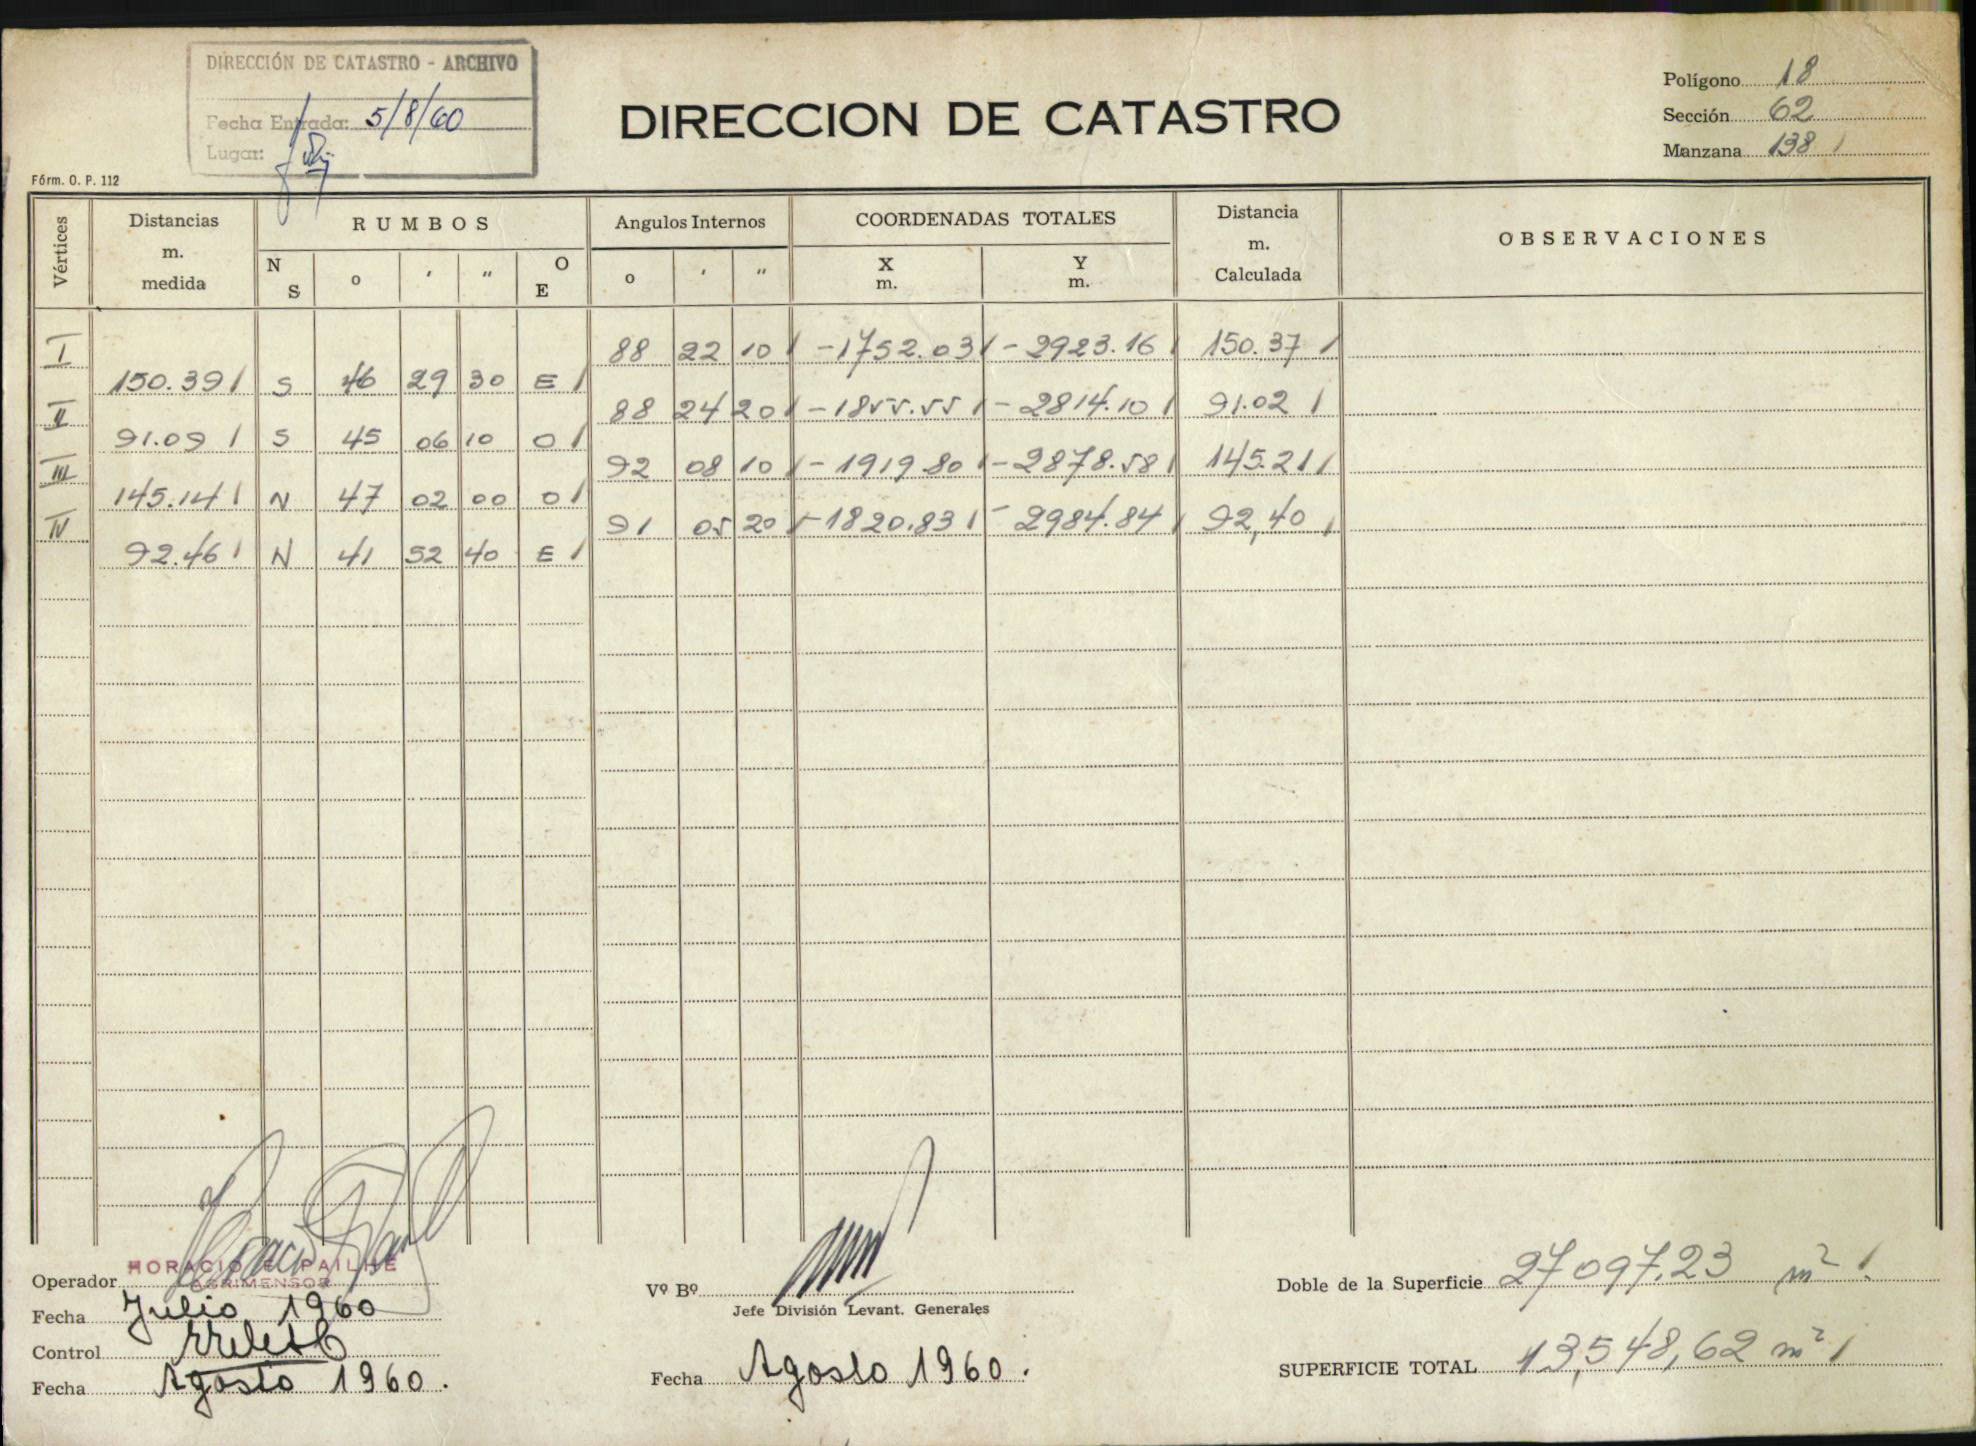 DIRECCIÓN DE CATASTRO - ARCHIVO
Fecha Entrada: 5/8/60
Lugar:
DIRECCION DE CATASTRO
Polígono 18
Sección 62
Manzana 138
Fórm. O. P. 112
Vértices
Distancias m. medida
RUMBOS
N S o ′ ″ O E
Angulos Internos
o ′ ″
COORDENADAS TOTALES
X m. Y m.
Distancia m. Calculada
OBSERVACIONES
I 88 22 10 -1752.03 -2923.16 150.37
150.39 S 46 29 30 E
II 88 24 20 -1855.55 -2814.10 91.02
91.09 S 45 06 10 O
III 92 08 10 -1919.80 -2878.58 145.21
145.14 N 47 02 00 O
IV 91 05 20 -1820.83 -2984.84 92,40
92.46 N 41 52 40 E
Operador HORACIO E. PAILHÉ
AGRIMENSOR
Fecha Julio 1960
Control
Fecha Agosto 1960.
Vº Bº
Jefe División Levant. Generales
Fecha Agosto 1960.
Doble de la Superficie 27097,23 m²
SUPERFICIE TOTAL 13,548,62 m²